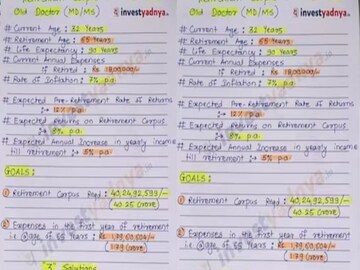 Old Doctor (MD/MS)
investyadnya.in
# Current Age : 32 Years
# Retirement Age : 55 Years
# Life Expectancy : 90 Years
# Current Annual Expenses
if Retired : Rs 18,00,000/-
# Rate of Inflation : 7% p.a.
# Expected Pre-Retirement Rate of Returns
:→ 12% p.a.
# Expected Returns on Retirement Corpus
:→ 8% p.a.
# Expected Annual Increase in yearly income
till retirement :→ 5% p.a.
GOALS :
① Retirement Corpus Reqd : 40,24,92,593/-
(40.25 crore)
② Expenses in the first year of retirement
i.e. @age of 55 Years : Rs
(1.79 crore)
3 Solutions
Old Doctor (MD/MS)
investyadnya.in
# Current Age : 32 Years
# Retirement Age : 55 Years
# Life Expectancy : 90 Years
# Current Annual Expenses
if Retired : Rs 18,00,000/-
# Rate of Inflation : 7% p.a.
# Expected Pre-Retirement Rate of Returns
:→ 12% p.a.
# Expected Returns on Retirement Corpus
:→ 8% p.a.
# Expected Annual Increase in yearly income
till retirement :→ 5% p.a.
GOALS :
① Retirement Corpus Reqd : 40,24,92,593/-
(40.25 crore)
② Expenses in the first year of retirement
i.e. @age of 55 Years : Rs
(1.79 crore)